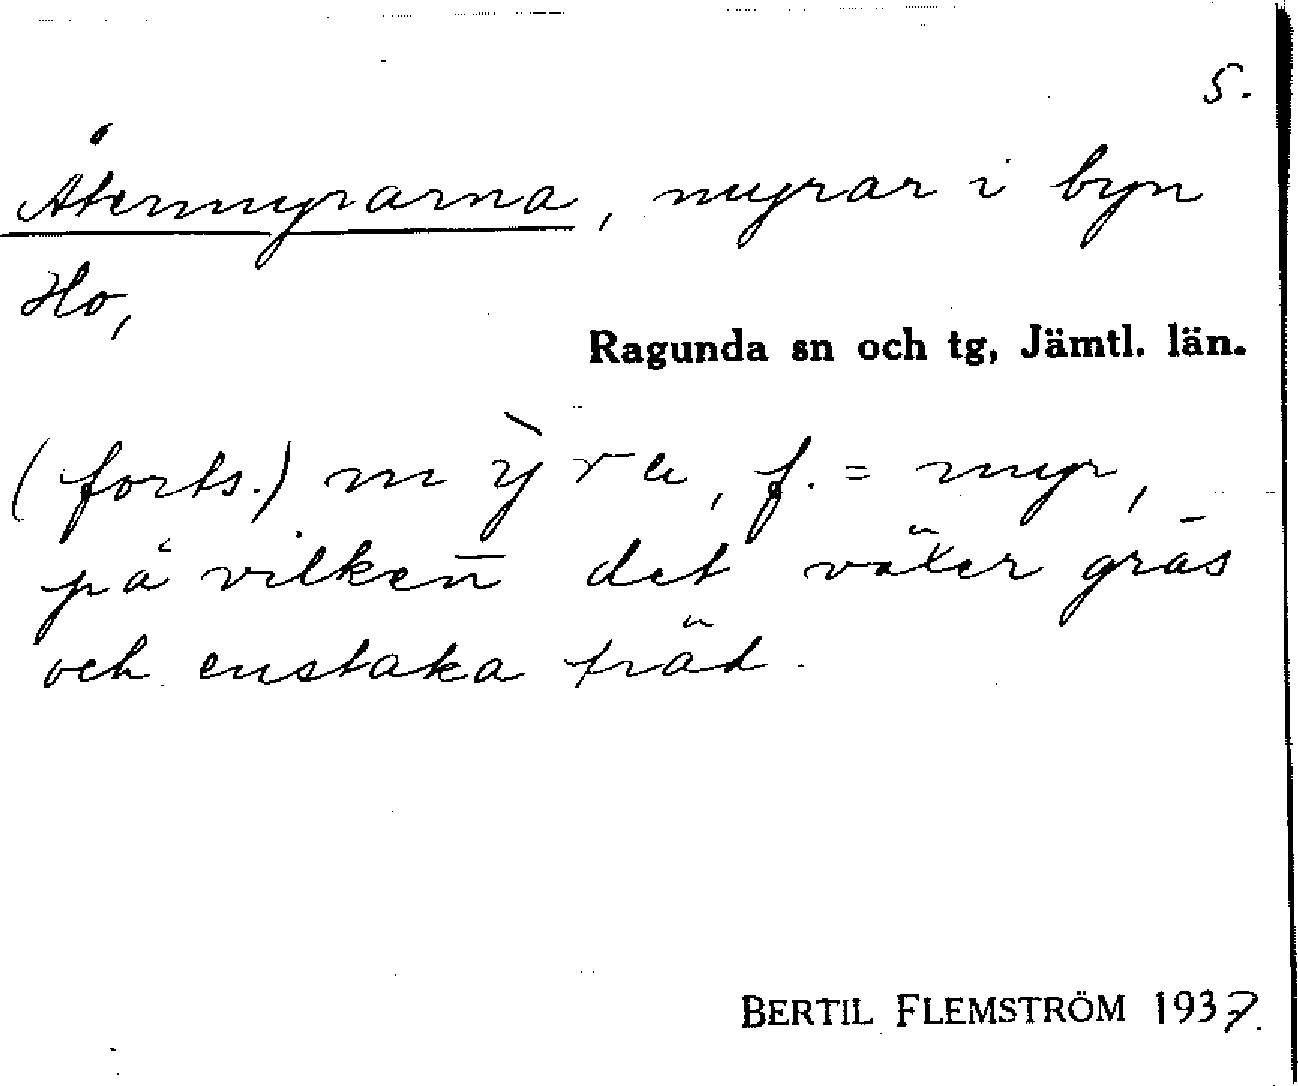 S.
Återmyrarna, myrar i byn
Ho,
Ragunda sn och tg, Jämtl. län.
(forts.) m ỳ r a, f. = myr,
på vilken det växer gräs
och enstaka träd.
BERTIL FLEMSTRÖM 1937.